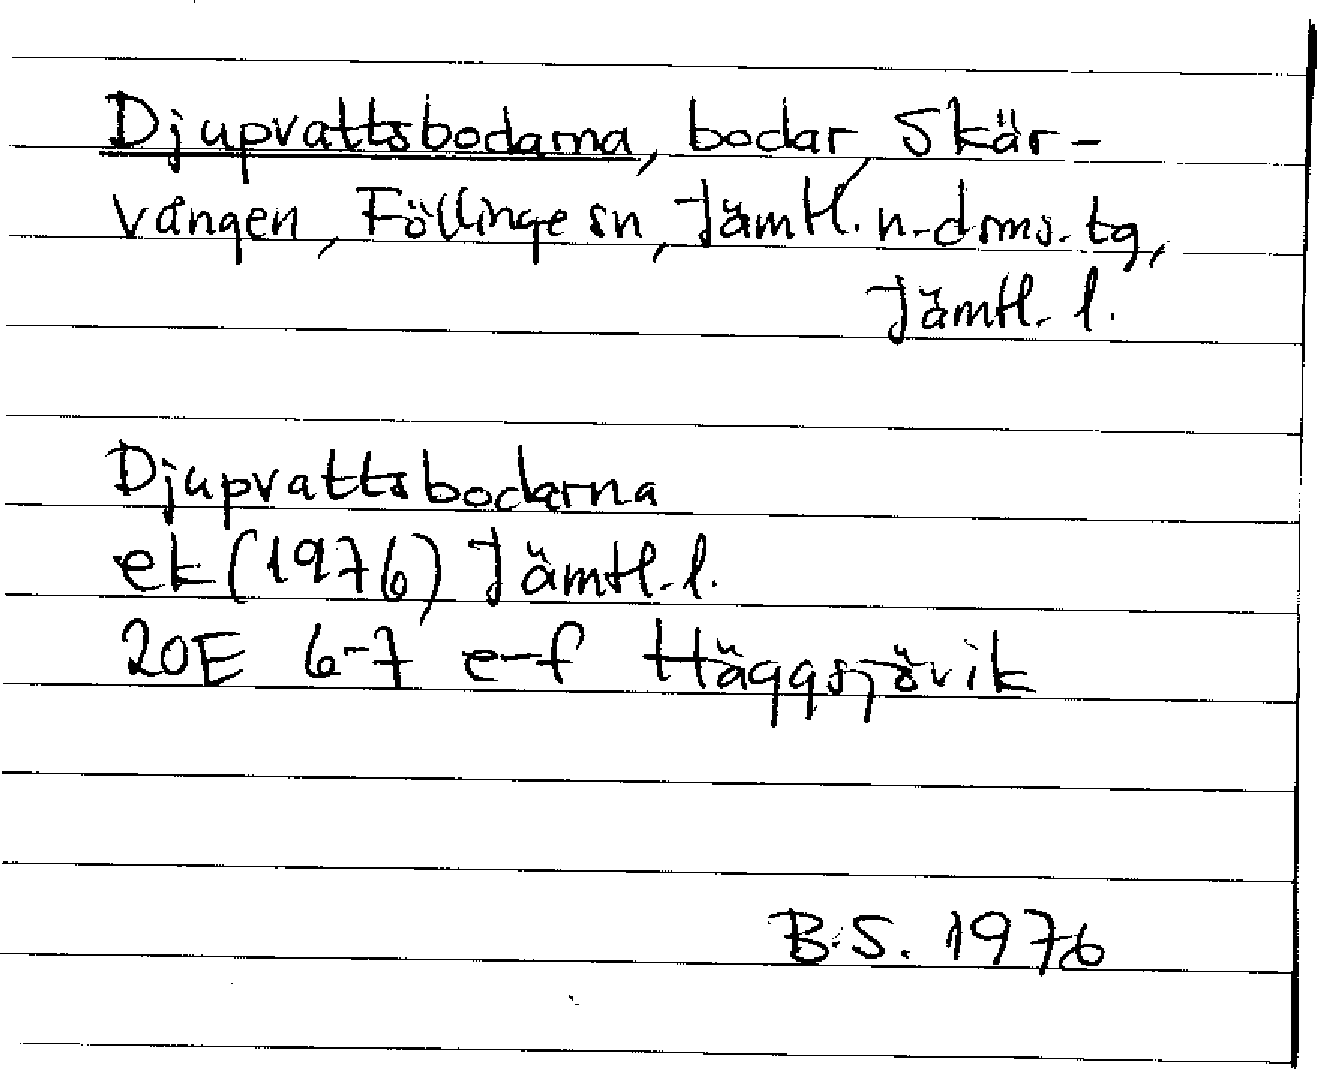 Djupvattsbodarna, bodar, Skär-
vången, Föllinge sn, Jämtl. n. doms. tg,
Jämtl. l.
Djupvattsbodarna
ek (1976) Jämtl. l.
20E 6-7 e-f Häggsjövik
B.S. 1976